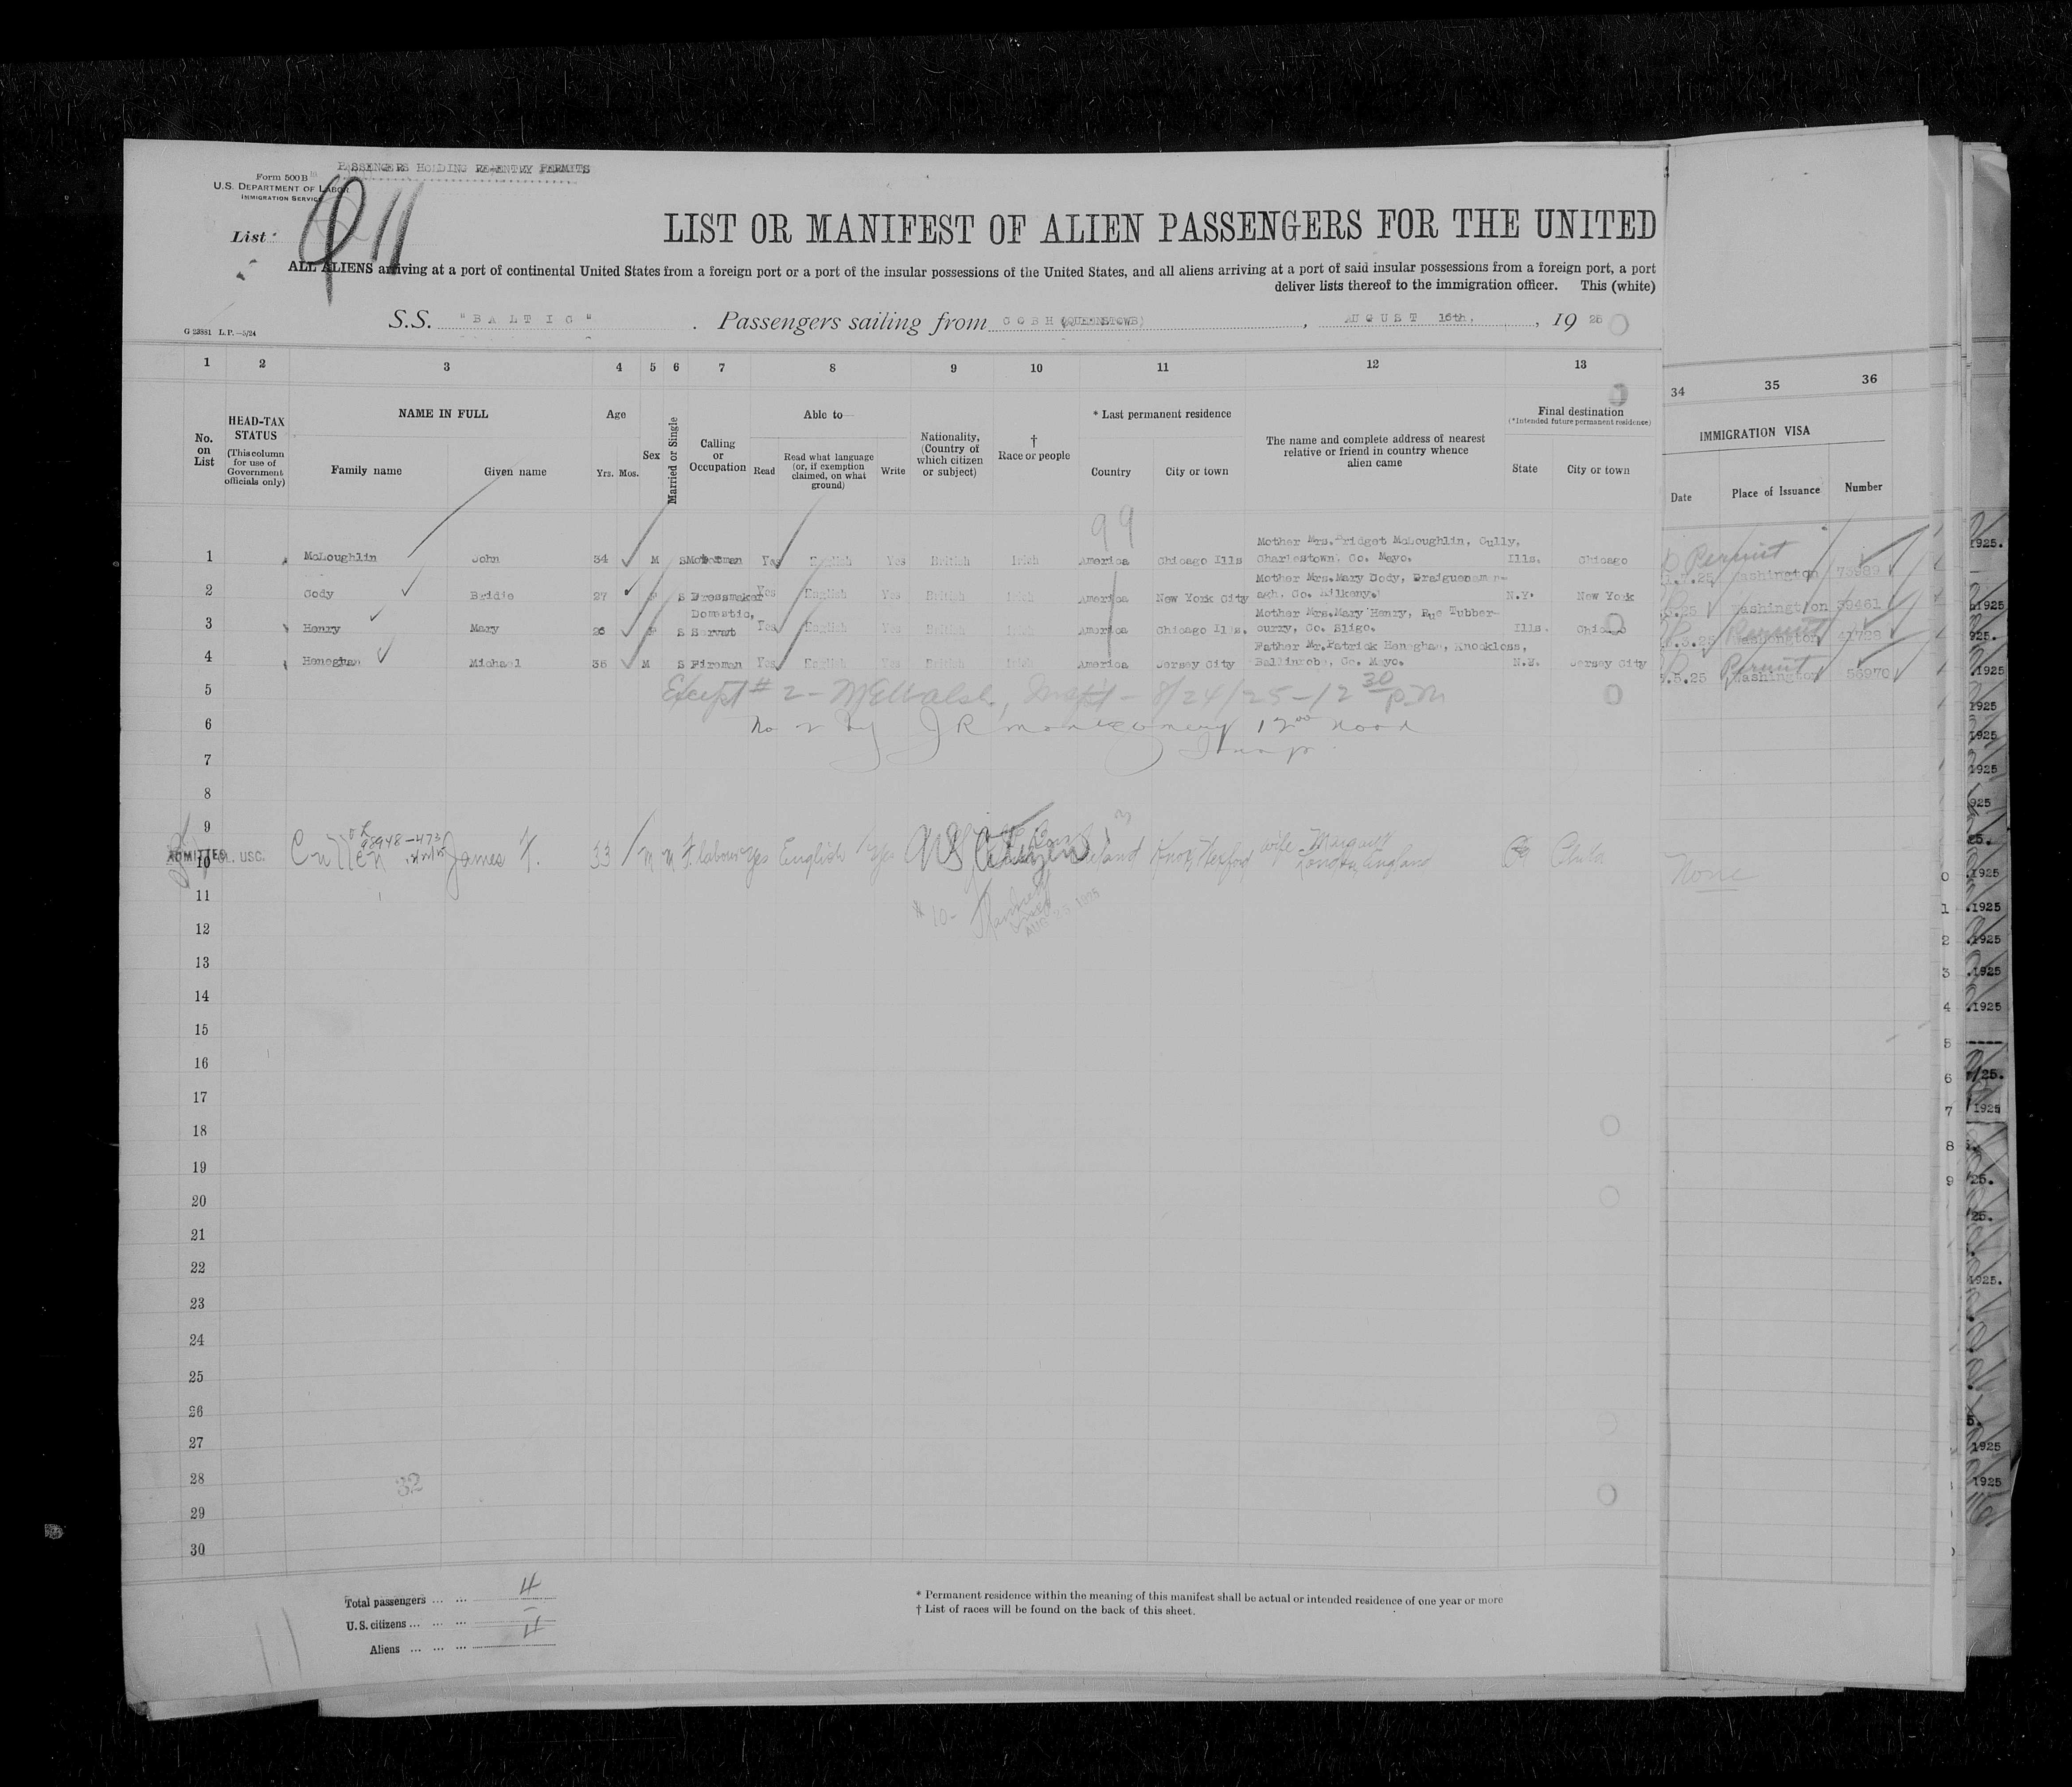 PASSENGERS HOLDING RE-ENTRY PERMITS
Form 500 B
U.S. DEPARTMENT OF LABOR
IMMIGRATION SERVICE
List
LIST OR MANIFEST OF ALIEN PASSENGERS FOR THE UNITED
ALL ALIENS arriving at a port of continental United States from a foreign port or a port of the insular possessions of the United States, and all aliens arriving at a port of said insular possessions from a foreign port, a port
deliver lists thereof to the immigration officer. This (white)
G 23881 L.P.—5/24
S.S. "BALTIC" . Passengers sailing from COBH (QUEENSTOWN) , AUGUST 16th, , 19 25
1 2 3 4 5 6 7 8 9 10 11 12 13
34 35 36
No. on List
HEAD-TAX STATUS (This column for use of Government officials only)
NAME IN FULL
Family name Given name
Age
Yrs. Mos.
Sex
Married or Single
Calling or Occupation
Able to—
Read
Read what language (or, if exemption claimed, on what ground)
Write
Nationality, (Country of which citizen or subject)
† Race or people
* Last permanent residence
Country City or town
The name and complete address of nearest relative or friend in country whence alien came
Final destination
(*Intended future permanent residence)
State City or town
IMMIGRATION VISA
Date Place of Issuance Number
99
Mother Mrs. Bridget McLoughlin, Cully,
1 McLoughlin John 34 M S Yes English Yes British Irish America Chicago Ills Charlestown, Co. Mayo. Ills. Chicago
Permit
Washington 73989
Mother Mrs. Mary Cody,
2 Cody Bridie 27 F S Dressmaker Yes English Yes British Irish America New York City agh, Co. Kilkenny. N.Y. New York
Washington 39461
Domestic, Mother Mrs. Mary Henry, Rue Tubber-
3 Henry Mary 26 F S Servant Yes English Yes British Irish America Chicago Ills. curry, Co. Sligo. Ills. Chicago
Permit
Washington 41728
Father Mr. Patrick Heneghan, Knockloss,
4 Heneghan Michael 36 M S Fireman Yes English Yes British Irish America Jersey City Ballinrobe, Co. Mayo. Jersey City
Permit
Washington 56970
5 Except #2 - McWalsh, Insp - 8/24/25 - 12 30 p.m
6 No 2 by J R Montgomery 12 00 noon
7
8
9
98948-473
ADMITTED
10 USC. Cullen James 33 M M F. labour Yes English Yes US Citizen Ireland wife Margaret London, England Pa Phila None
11
#10-
AUG 25 1925
12
13
14
15
16
17
18
19
20
21
22
23
24
25
26
27
28
32
29
30
Total passengers ... ... 4
U.S. citizens ... ... ... –
Aliens ... ... ... 4
* Permanent residence within the meaning of this manifest shall be actual or intended residence of one year or more
† List of races will be found on the back of this sheet.